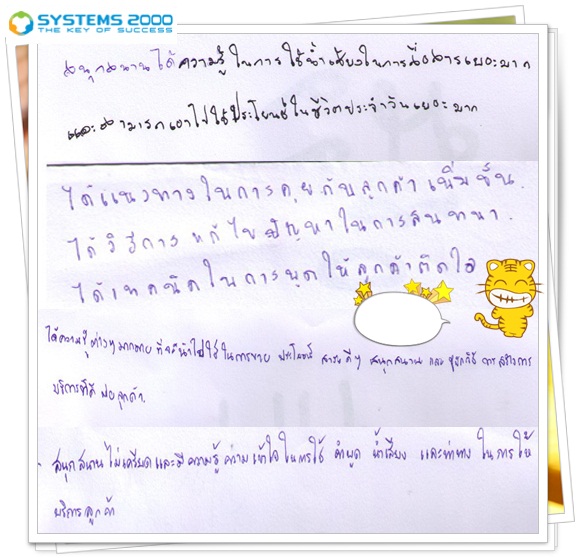 SYSTEMS 2000
THE KEY OF SUCCESS
สนุกสนานได้ความรู้ในการใช้น้ำเสียงในการสื่อสารเยอะมาก
และสามารถเอาไปใช้ประโยชน์ในชีวิตประจำวันเยอะมาก
ได้แนวทางในการคุยกับลูกค้าเพิ่มขึ้น.
ได้วิธีการแก้ไขปัญหาในการสนทนา.
ได้เทคนิคในการพูดให้ลูกค้าติดใจ
ได้ความรู้ต่างๆมากมาย ที่จะนำไปใช้ในการขาย ประโยชน์ สาระดีๆ สนุกสนาน และ การสร้างการ
บริการที่ดี ต่อลูกค้า.
- สนุกสนานไม่เครียดและมีความรู้ความเข้าใจในการใช้ คำพูด น้ำเสียง และท่าทาง ในการให้
บริการลูกค้า